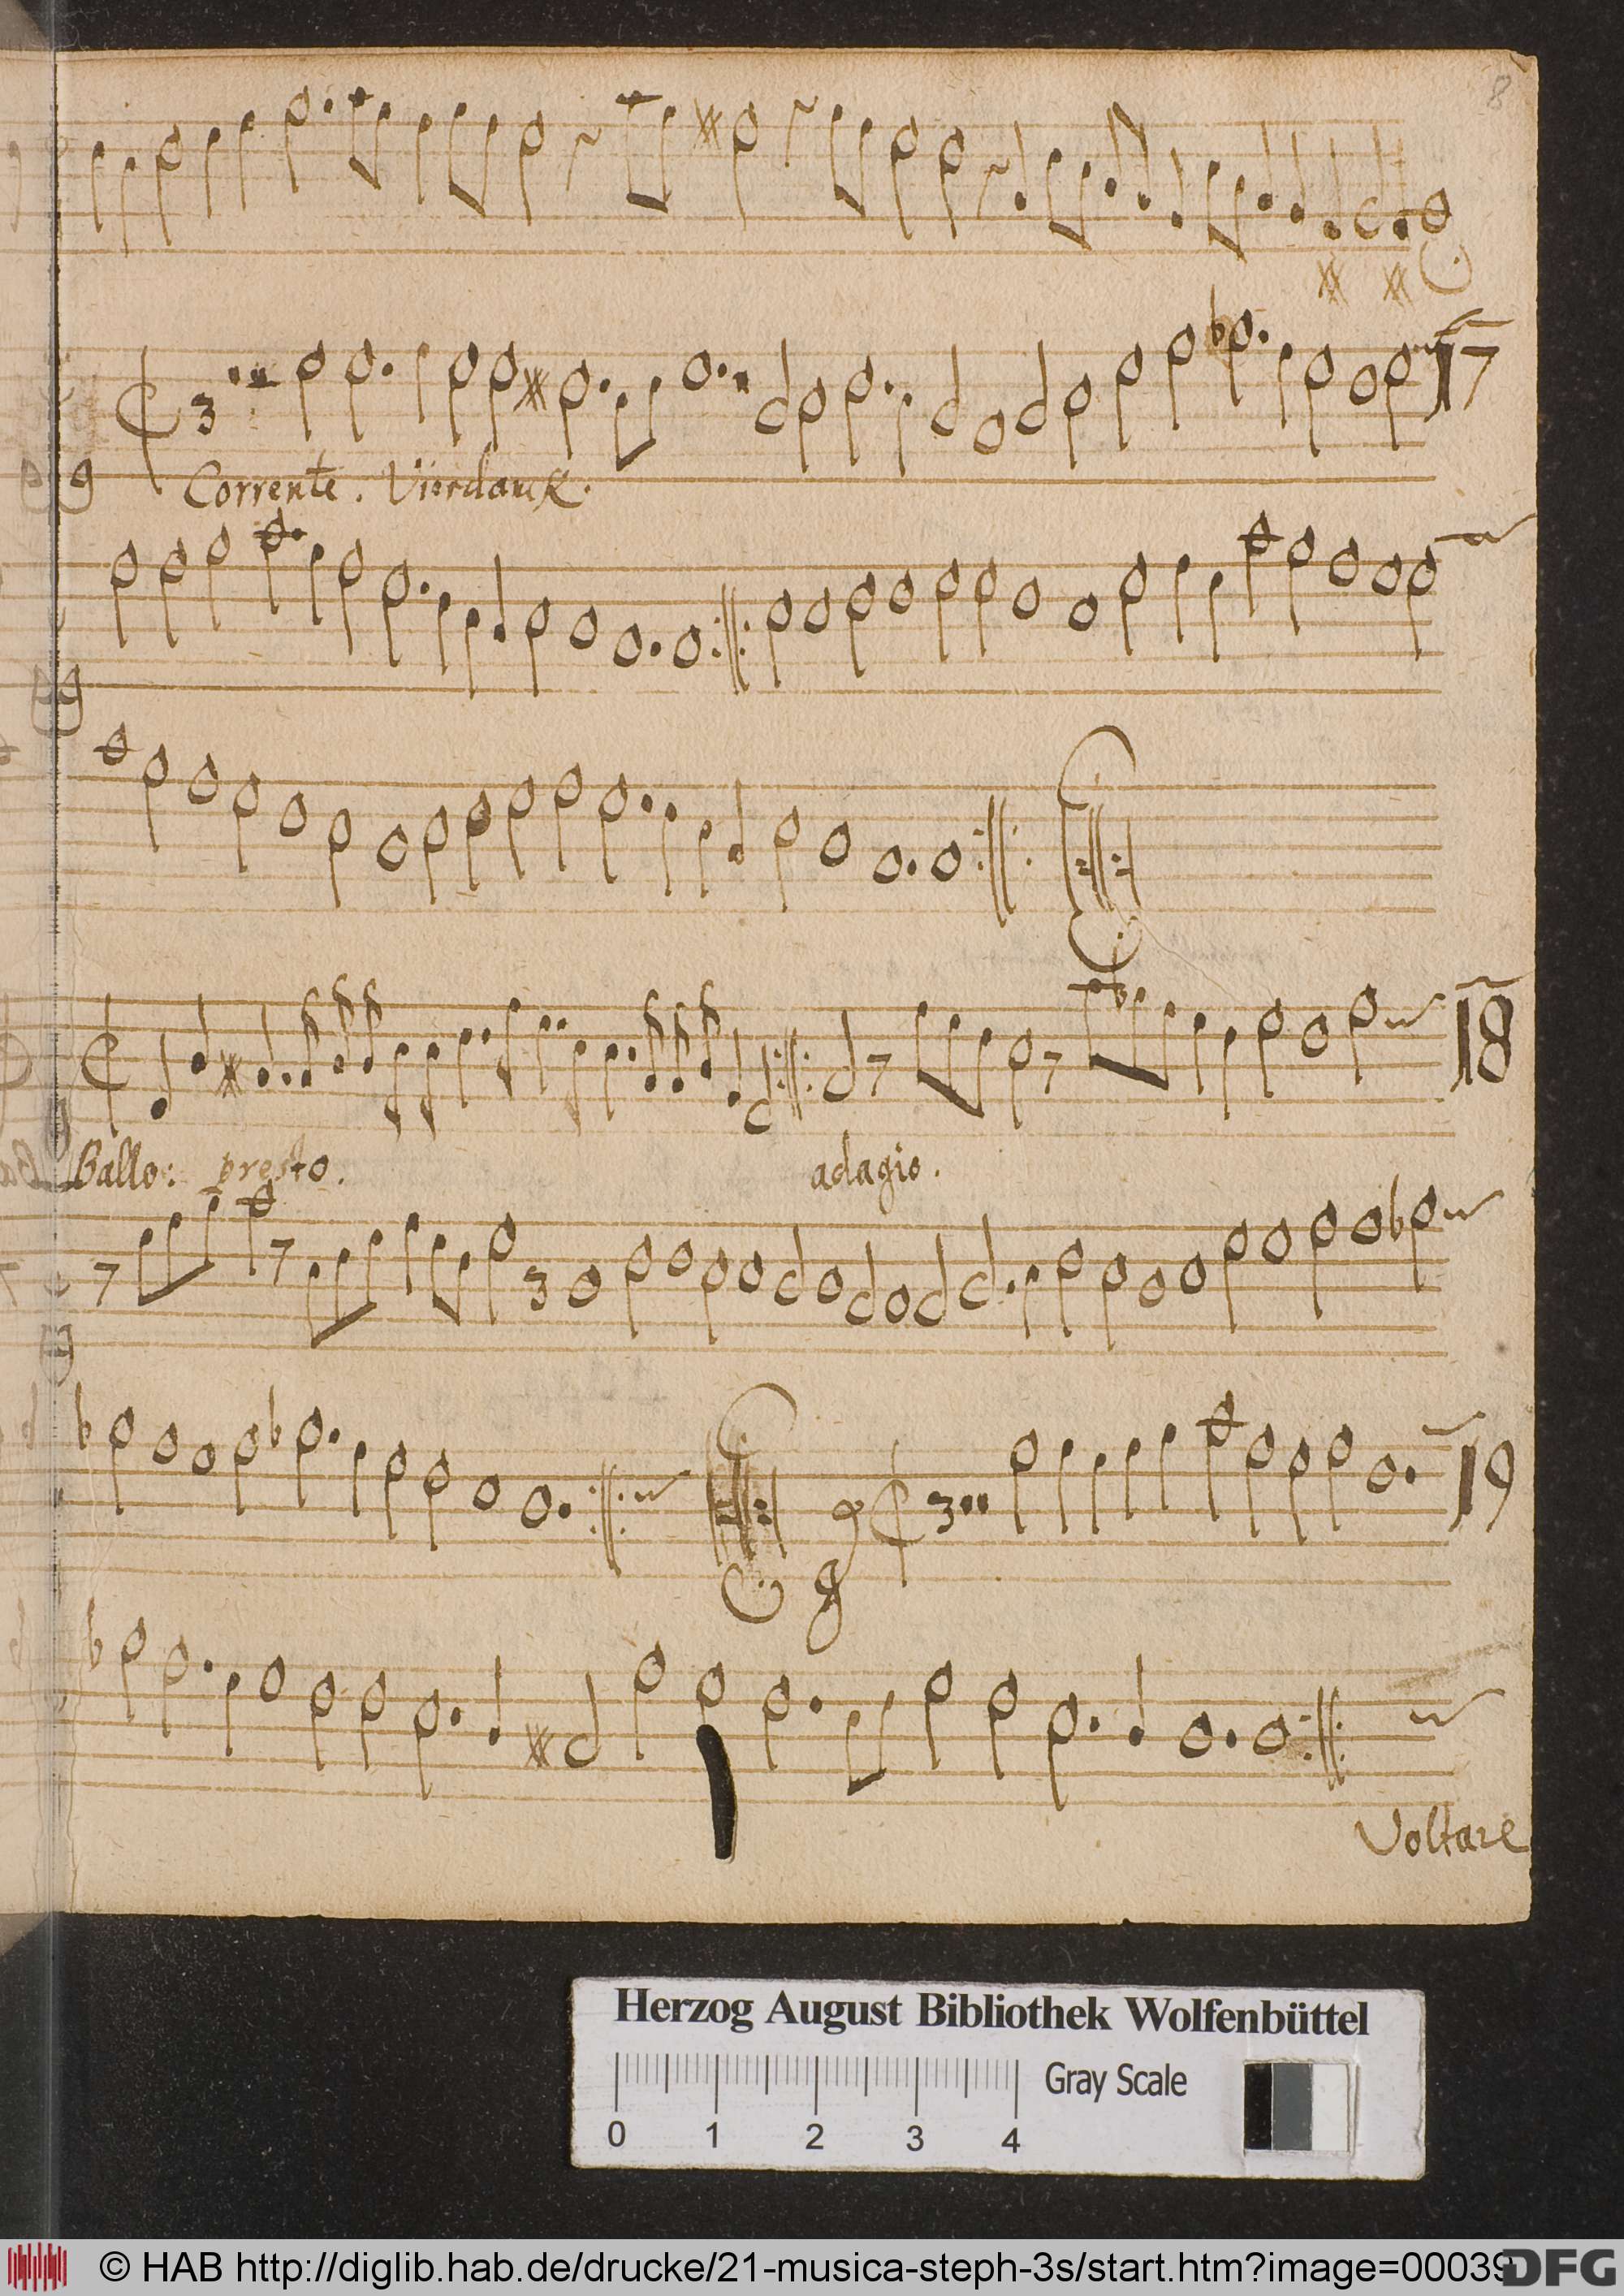 8
3
17
Corrente. Vierdanck.
18
Ballo: presto.
adagio.
3
3
19
Voltare
Herzog August Bibliothek Wolfenbüttel
Gray Scale
0 1 2 3 4
© HAB http://diglib.hab.de/drucke/21-musica-steph-3s/start.htm?image=00039
DFG